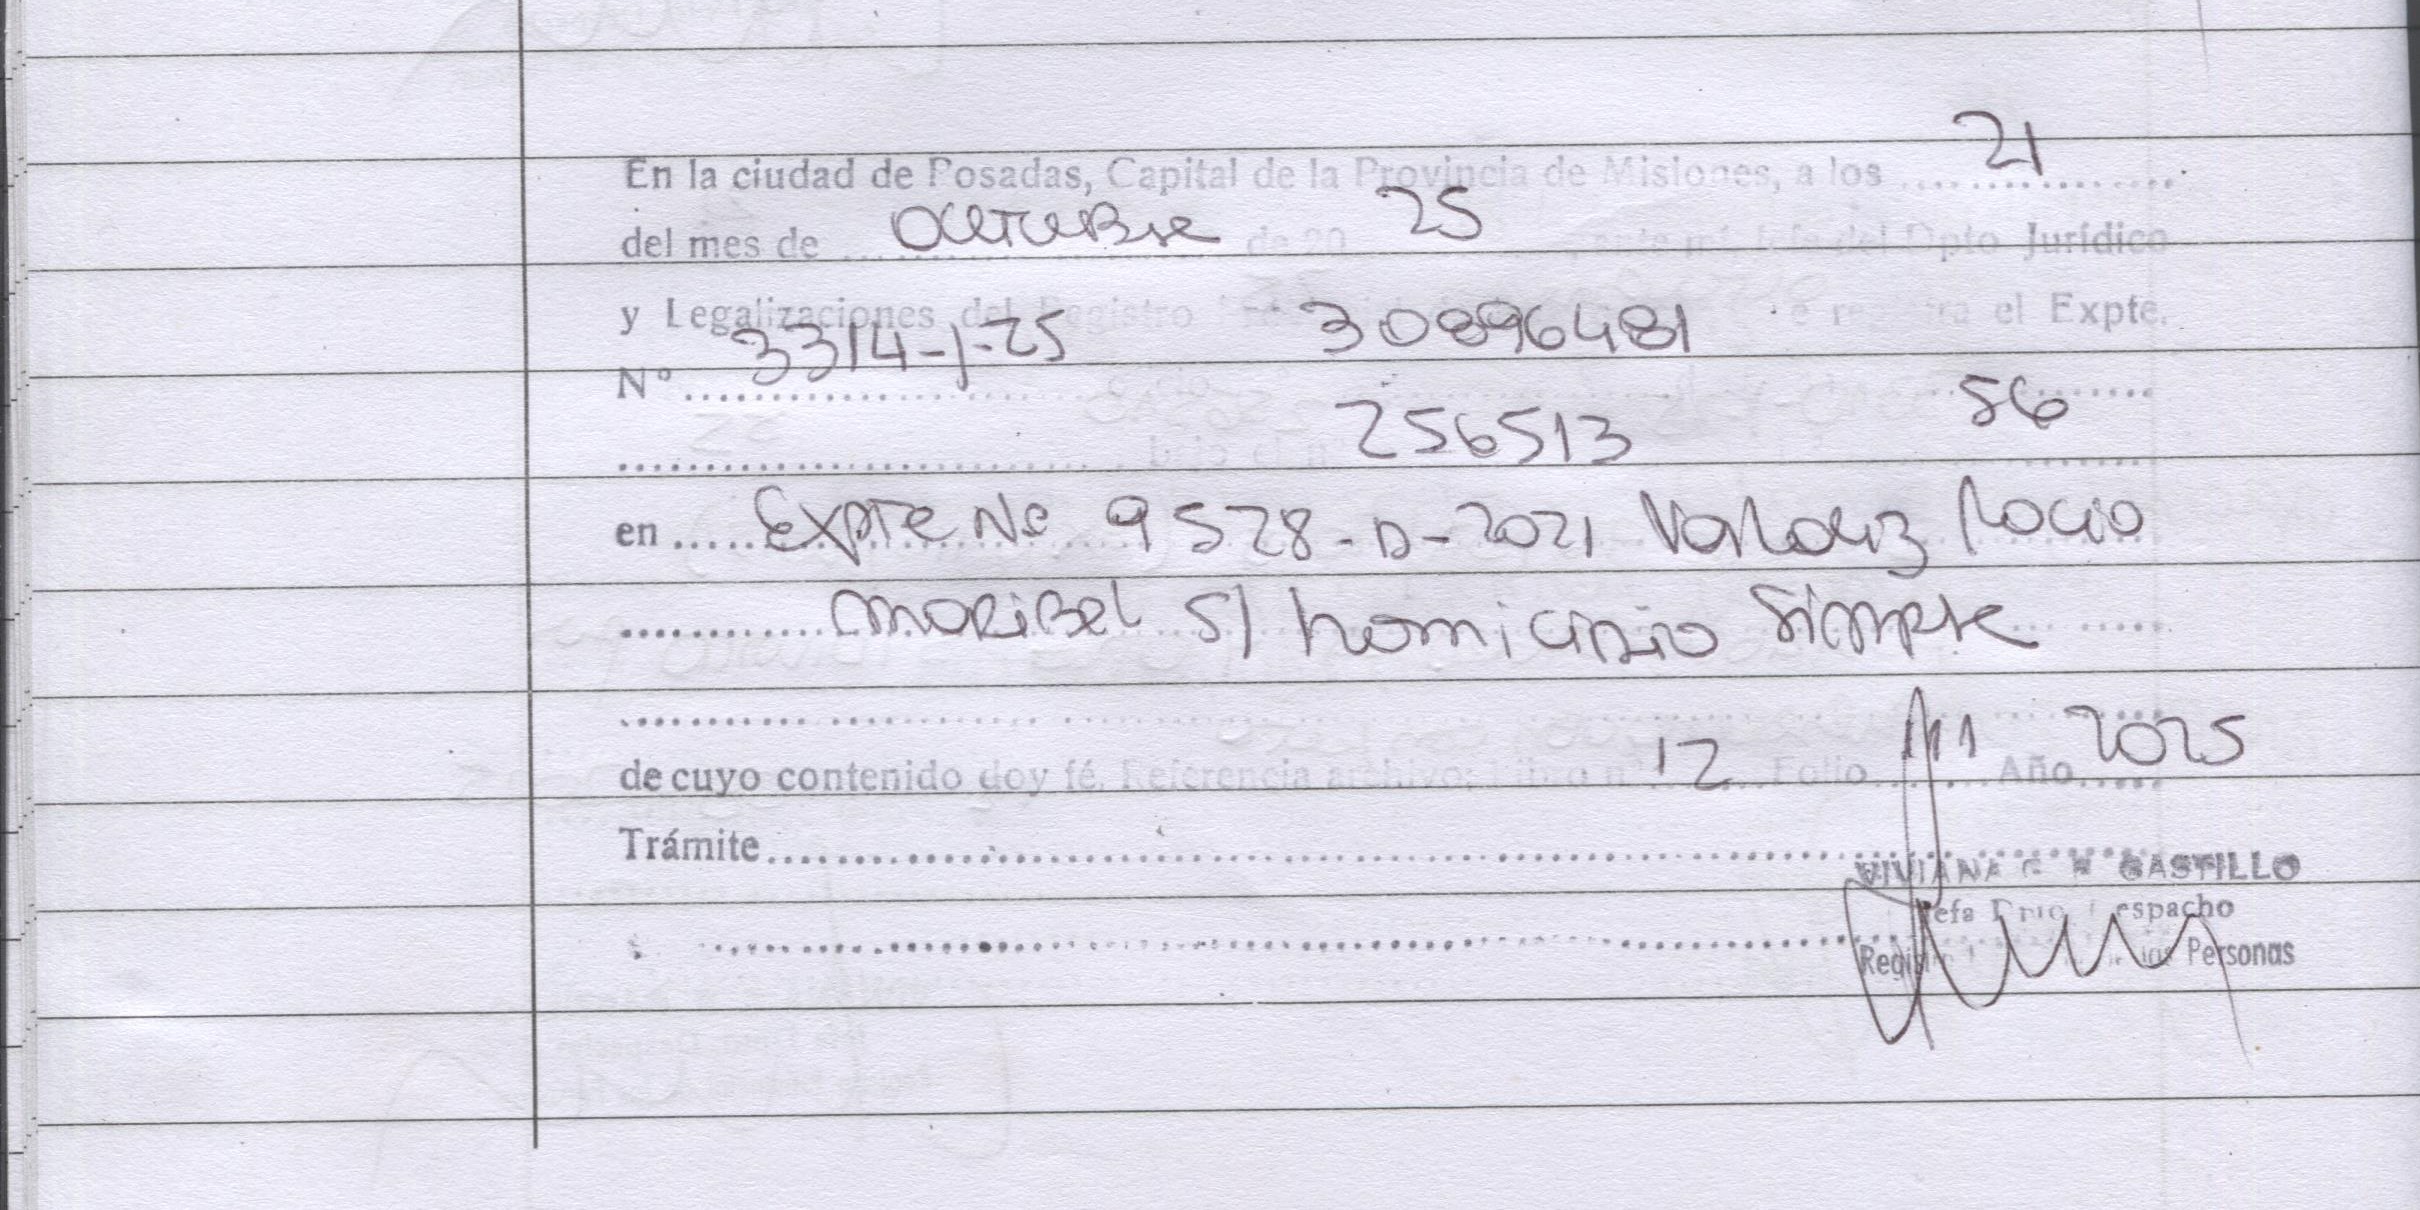 En la ciudad de Posadas, Capital de la Provincia de Misiones, a los ........ 21
del mes de ........ octubre de 20 25 Dpto Jurídico
y Legalizaciones del Registro el Expte.
Nº ........ 3314-J-25 30896481
........ bajo el n 256513 56
en ..... Expte Nº 9528-D-2021 Valdez Rocio
........ Maribel S/ homicidio Simple .....
........
de cuyo contenido doy fé. Referencia archivo: Libro nº 12 Folio 111 Año 2025
Trámite ........
VIVIANA CASTILLO
Jefa Dpto Despacho
Personas